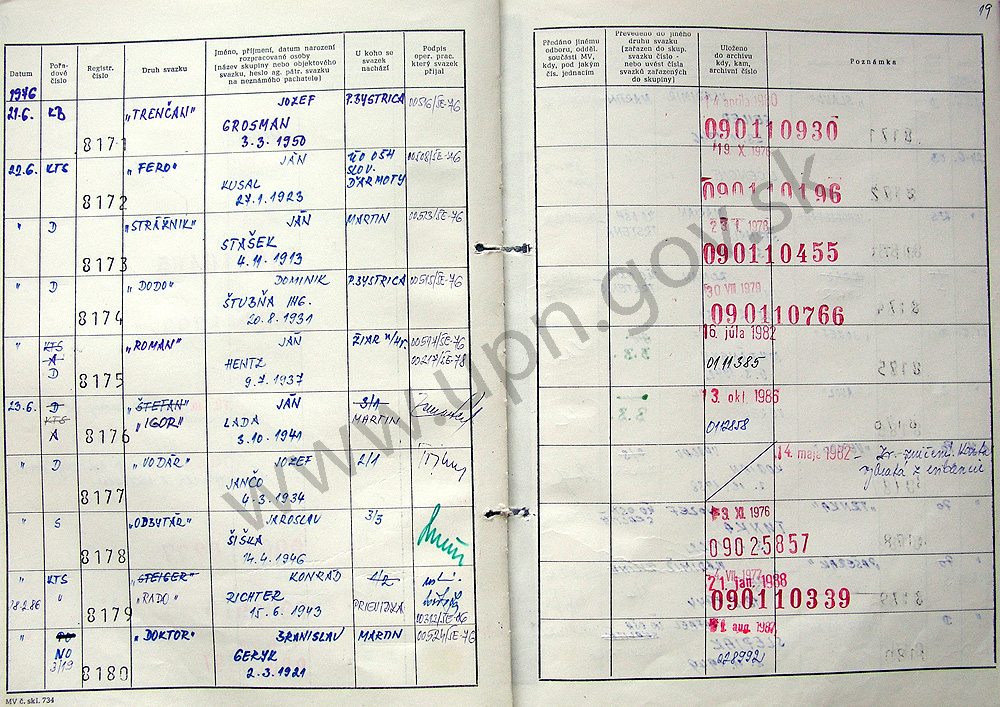 19
Datum
Pořa-
dové
číslo
Registr.
číslo
Druh svazku
Jméno, příjmení, datum narození
rozpracované osoby
(název skupiny nebo objektového
svazku, heslo ag. pátr. svazku
na neznámého pachatele)
U koho se
svazek
nachází
Podpis
oper. prac.
který svazek
přijal
Předáno jinému
odboru, odděl.
součásti MV,
kdy, pod jakým
čís. jednacím
Převedeno do jiného
druhu svazku
(zařazen do skup.
svazku číslo -
nebo uvést čísla
svazků zařazených
do skupiny)
Uloženo
do archívu
kdy, kam,
archivní číslo
Poznámka
1976
21.6. KB 8171 "TRENČAN" JOZEF P.BYSTRICA 00516/ŠE-76
GROSMAN
3.3.1950
090110930
22.6. KTS 8172 "FERO" JÁN
KUSAL
27.1.1923
ÚO 054
SLOV.
ĎARMOTY
00508/ŠE-76
19. X. 1976
090110196
" D 8173 "STRÁŽNIK" JÁN MARTIN 00513/ŠE-76
STAŠEK
4.11.1913
090110455
" D 8174 "DODO" DOMINIK P.BYSTRICA 00515/ŠE-76
ŠTUBŇA ING.
20.8.1931
090110766
" KTS
A
D
8175 "ROMAN" JÁN
HENTZ
9.7.1937
ŽIAR n/Hr.
00517/ŠE-76
16. júla 1982
0111385
23.6. D
KTS
A
8176 "ŠTEFAN"
"IGOR"
JÁN
LADA
3.10.1941
3/1
MARTIN
13. okt. 1986
" D 8177 "VODÁR" JOZEF 2/1
JANČO
4.3.1934
14. maja 1982
" S 8178 "ODBYTÁR" JAROSLAV 3/3
ŠIŠKA
14.4.1946
XI. 1976
09025857
" KTS "STEIGER" KONRÁD 1/2
18.2.86 " 8179 "RADO" RICHTER PRIEVIDZA
15.6.1943
00312/ŠE-76
21. jan. 1988
090110339
" PO
NO
3/19
8180 "DOKTOR" BRANISLAV MARTIN 00524/ŠE-76
GERYK
2.3.1921
aug. 1987
MV č. skl. 734
www.upn.gov.sk